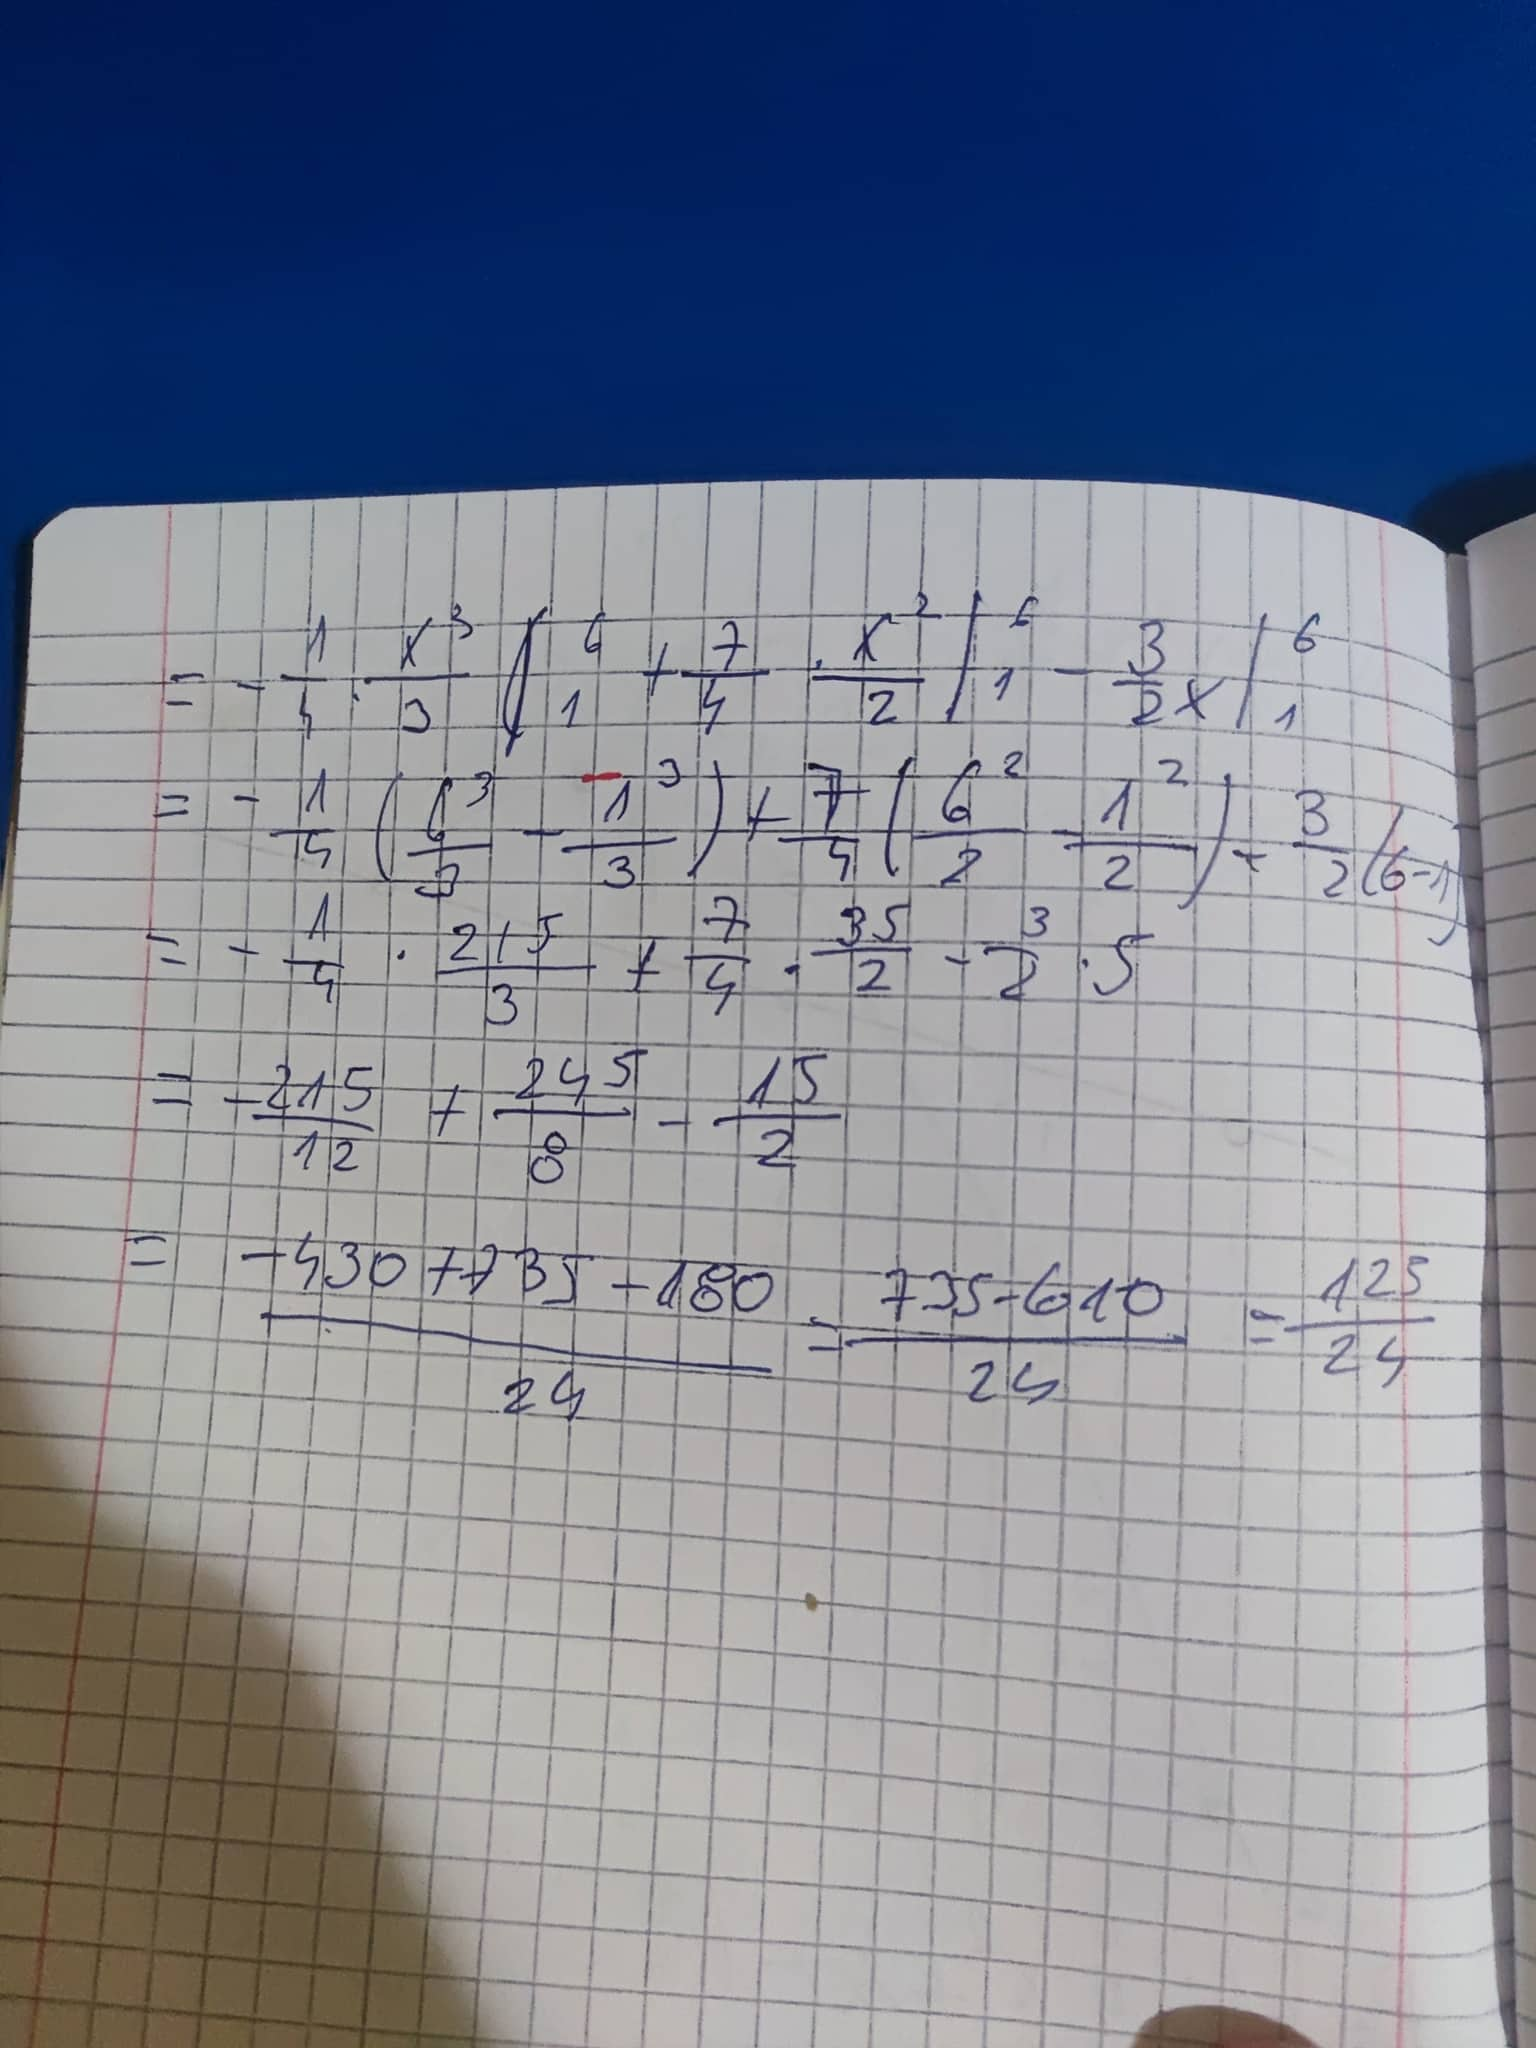 = - 1/4 · x³/3 |₁⁶ + 7/4 · x²/2 |₁⁶ - 3/2 x |₁⁶
= - 1/4 (6³/3 - 1³/3) + 7/4 (6²/2 - 1²/2) - 3/2 (6-1)
= - 1/4 · 215/3 + 7/4 · 35/2 - 3/2 · 5
= - 215/12 + 245/8 - 15/2
= (-430+735-180)/24 = (735-610)/24 = 125/24